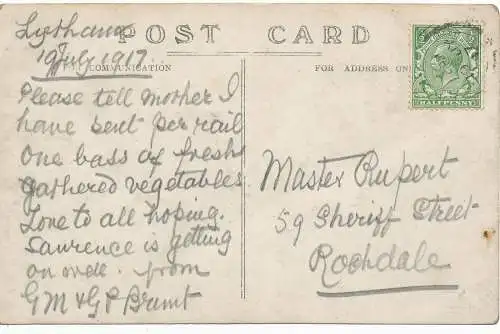 Lytham
POST CARD
19 July 1917
COMMUNICATION
FOR ADDRESS ONL
Please tell mother I
have sent per rail
one bass of fresh
gathered vegetables
Love to all hoping
Lawrence is getting
on well. from
GM & GP Brunt
Master Rupert
59 Sheriff Street
Rochdale
HALFPENNY